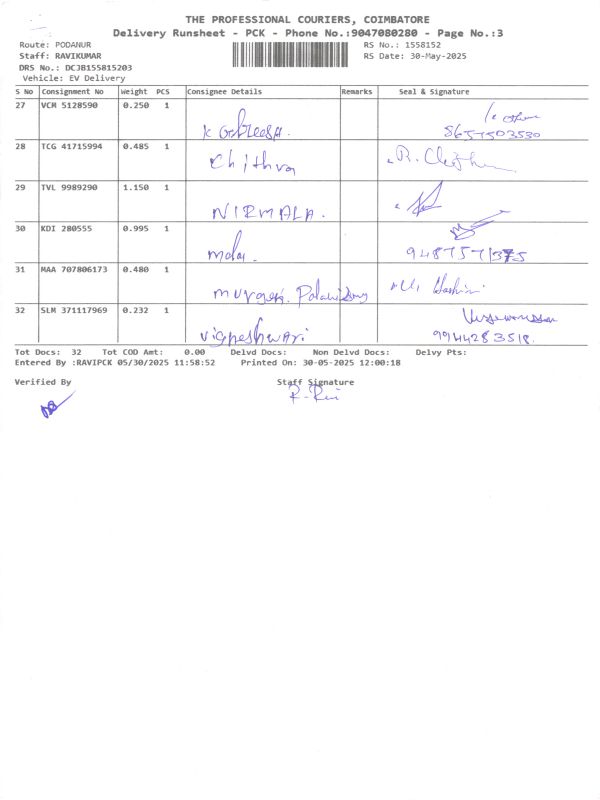 THE PROFESSIONAL COURIERS, COIMBATORE
Delivery Runsheet - PCK - Phone No.:9047080280 - Page No.:3
Route: PODANUR RS No.: 1558152
Staff: RAVIKUMAR RS Date: 30-May-2025
DRS No.: DCJB155815203
Vehicle: EV Delivery
S No Consignment No Weight PCS Consignee Details Remarks Seal & Signature
27 VCM 5128590 0.250 1
K 8657503530
28 TCG 41715994 0.485 1
Chithra R.
29 TVL 9989290 1.150 1
NIRMALA.
30 KDI 280555 0.995 1
31 MAA 707806173 0.480 1
32 SLM 371117969 0.232 1
Vigneshwari 9944283518.
Tot Docs: 32 Tot COD Amt: 0.00 Delvd Docs: Non Delvd Docs: Delvy Pts:
Entered By :RAVIPCK 05/30/2025 11:58:52 Printed On: 30-05-2025 12:00:18
Verified By Staff Signature